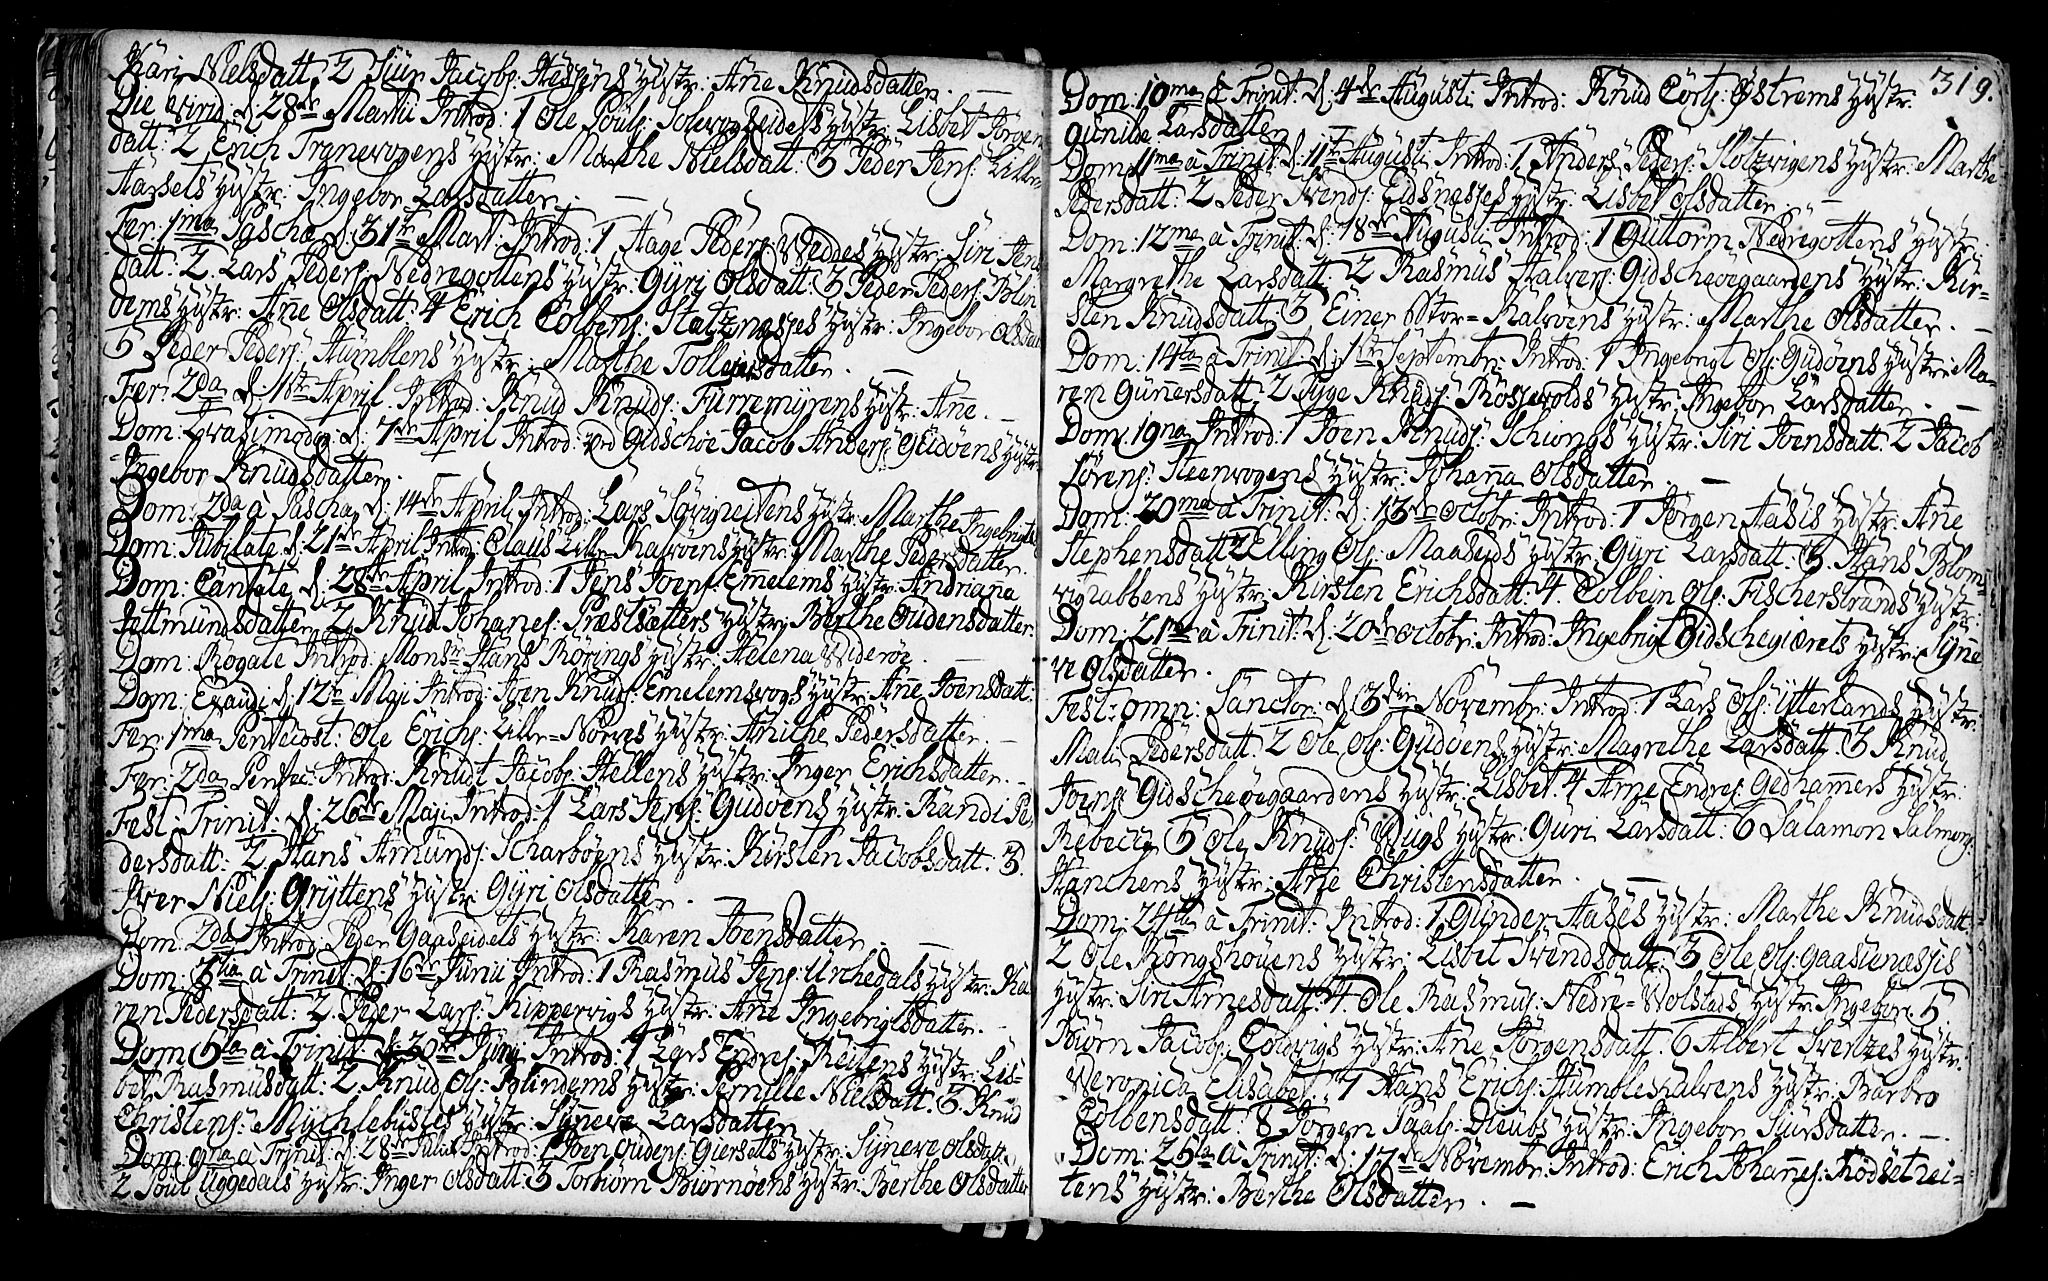 Kari Nielsdatt: 2 Siur Jacobs: Hessens hustr: Anne Knudsdatter. —
Die Virid: d: 28de Martii Introd: 1 Ole Pouls: Solevogseidets hustr: Lisbet Jørgens
datt: 2 Erich Trynevogens hustr: Marthe Nielsdatt: 3 Peder Jens: Lille
Aarsets hustr: Ingebor Larsdatter. —
Fer: 1ma Paschæ d: 31te Mart: Introd: 1 Aage Peders Weddes hustr: Siri Jens
datt: 2. Lars Peders: Nedregottens hustr: Gyri Olsdatt: 3 Peder Peders: Blin
dems hustr: Anne Olsdatt: 4 Erich Colbens: Statznæsses hustr: Ingebor Olsdatt
5 Peder Peders: Humblens hustr: Marthe Tollevsdatter. —
Fer: 2da d: 1ste April Introd: Knud Knuds: Furremyrens hustr: Anne. —
Dom: Qvasimodog: d: 7de April Introd: ved Gidschøe Jacob Anders: Gudøens hustr:
Ingebor Knudsdatter. —
Dom: 2da à Pascha d: 14de April Introd: Lars Løvigneitens hustr: Marthe Ingebrigts
Dom: Jubilate d: 21de April Introd: Claus Lille Kalvøens hustr: Marthe Pedersdatter.
Dom: Cantate d: 28de April Introd: 1 Jens Joens: Emmelems hustr: Andrianna
Jettmundsdatter 2 Knud Johanes: Præstsætters hustr: Berthe Oudensdatter.
Dom: Rogate Introd: Monsr Hans Rørings hustr: Helena Widerøe. —
Dom: Exaudi d: 12te Maji Introd: Joen Knuds: Emelemsvogs hustr: Anne Joensdatt:
Fer: 1ma Pentecost: Ole Erichs: Lille-Nørves hustr: Anithe Pedersdatter. —
Fer: 2da Pentec: Introd: Knudt Jacobs: Hellens hustr: Inger Erichsdatter. —
Fest: Trinit: d: 26de Maji Introd: 1 Lars Jens: Gudøens hustr: Randi Pe-
dersdatt: 2. Hans Amunds: Scharbøens hustr: Kirsten Jacobsdatt: 3.
Iver Niels: Gryttens hustr: Gyri Olsdatter. —
Dom: 2da Introd: Peder Gaaseidets hustr: Karen Joensdatter. —
Dom: 3tia à Trinit: d: 16de Junii Introd: 1 Rasmus Jens: Urchedals hustr: Ka
ren Pedersdatt: 2. Peder Lars: Kippervigs hustr: Ane Ingebrigtsdatter. —
Dom 5ta à Trinit: d: 30te Junij Introd: 1 Lars Endres: Reitens hustr: Lis-
bet Rasmusdatt: 2. Knud Ols: Blindems hustr: Pernille Nielsdatt: 3 Knud
Christens: Mychlebusts hustr: Synneve Larsdatter.
Dom: 9na à Trinit: d: 28de Julii Introd: 1 Joen Oudens: Giersetts hustr: Synneve Olsdatt:
2 Poul Uggedals hustr: Inger Olsdatt: 3 Torbiørn Biørnøens hustr: Berthe Olsdatter
319.
Dom: 10ma à Trinit: d: 4de Augusti Introd: Knud Corts: Østrems hustr:
Gunilde Larsdatter
Dom: 11ma à Trinit: d: 11te Augusti Introd: 1 Anders Peders: Slotzvigens hustr: Marthe
Pedersdatt: 2 Peder Svends: Eidsnæsses hustr: Lisbet Olsdatter. —
Dom: 12ma à Trinit: d: 18de Augusti Introd: 1 Guttorm Nedregottens hustr:
Margrethe Larsdatt: 2 Rasmus Halvers: Gidschøegaardens hustr: Kir-
sten Knudsdatt: 3 Einer Stor-Kalvøens hustr: Marthe Olsdatter. —
Dom: 14ta à Trinit: d: 1ste Septembr: Introd: 1 Ingebrigt Ols: Gudøens hustr: Ma-
ren Gunersdatt: 2 Tyge Knuds: Røssevolds hustr: Ingebor Larsdatter. —
Dom: 19na Introd: 1 Joen Knuds: Schiongs hustr: Siri Joensdatt: 2 Jacob
Sørens: Steenvogens hustr: Johanna Olsdatter. —
Dom: 20ma à Trinit: d: 13de Octobr: Introd: 1 Jørgen Aases hustr: Ane
Stephensdatt: 2 Elling Ols: Maaseids hustr: Gyri Larsdatt: 3. Hans Blom-
vigrabbens hustr: Kirsten Erichsdatt: 4. Colbein Ols: Fischerstrands hustr:
Dom: 21ma à Trinit: d: 20de Octobr: Introd: Ingebrigt Gidschegierets hustr: Synne
ve Olsdatter. —
Fest: omn: Sanctor: d: 3die Novembr: Introd: 1 Lars Ols: Ytterlands hustr:
Mali Pedersdatt: 2 Ole Ols: Gudøens hustr: Magrethe Larsdatt: 3 Knud
Joens: Gidschøegaardens hustr: Lisbet. 4 Arne Endres: Gedhamers hustr:
Rebecca 5 Ole Knuds: Rugs hustr: Guri Larsdatt: 6 Salamon Salmons:
Hanchens hustr: Ane Christensdatter. —
Dom: 24ta à Trinit: Introd: 1 Gunder Aases hustr: Marthe Knudsdatt:
2 Ole Kongshouens hustr: Lisbet Svendsdatt: 3 Ole Ols: Gaasenæssis
hustr: Siri Arnesdatt: 4. Ole Rasmus: Nedre-Wolstads hustr: Ingebor 5
Biørn Jacobs: Coldvigs hustr: Ane Jørgensdatt: 6 Albert Sventzes hustr:
Weronica Elisabet. 7 Hans Erichs: Humblehalvens hustr: Barbro
Colbensdatt: 8 Jørgen Paals: Dleubs hustr: Ingebor Siursdatter. —
Dom: 25ta à Trinit: d: 17de Novembr: Introd: Erich Johannes: Rødsetrei-
tens hustr: Berthe Olsdatter. —